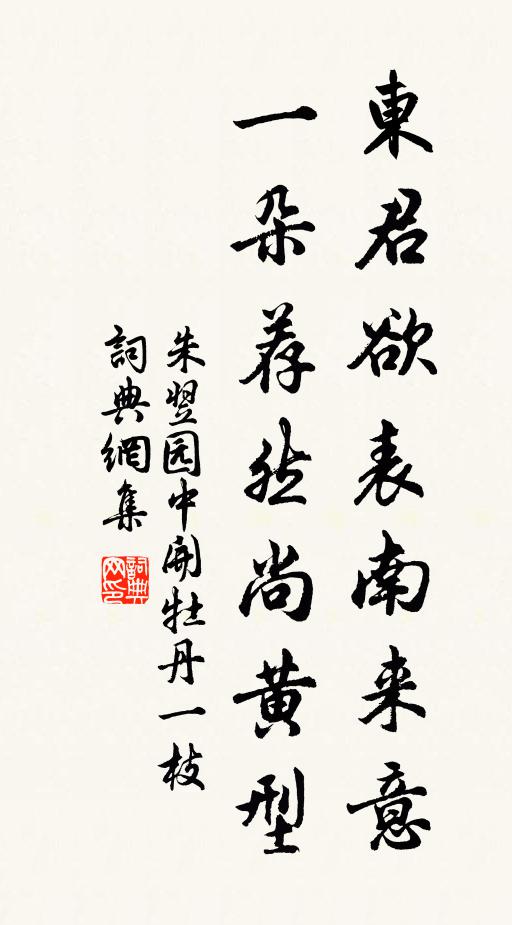 東君欲表南来意
一朵荐然尚黄型
朱翌园中開牡丹一枝
詞典網集
詞典网印